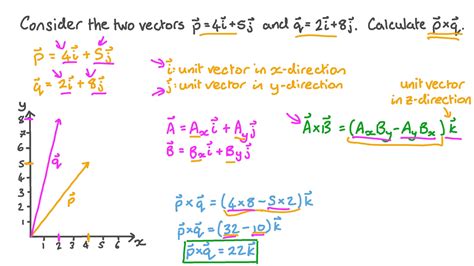 Consider the two vectors p⃗=4i⃗+5j⃗ and q⃗=2i⃗+8j⃗. Calculate p⃗×q⃗.
p⃗=4i⃗+5j⃗
q⃗=2i⃗+8j⃗
i⃗: unit vector in x-direction
j⃗: unit vector in y-direction
unit vector
in z-direction
A⃗=Aₓi⃗+Aᵧj⃗
B⃗=Bₓi⃗+Bᵧj⃗
A⃗×B⃗=(AₓBᵧ-AᵧBₓ)k⃗
y
8
7
6
5
4
3
2
1
1 2 3 4 5 6 x
q⃗
p⃗
p⃗×q⃗=(4×8-5×2)k⃗
p⃗×q⃗=(32-10)k⃗
p⃗×q⃗=22k⃗